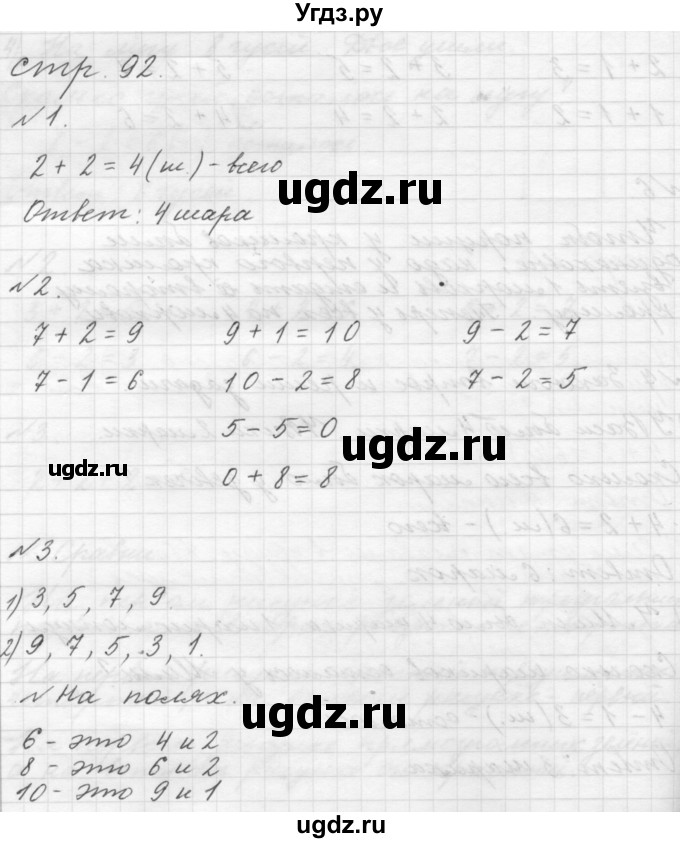 УГДZ.РУ
стр. 92.
№1.
2 + 2 = 4 (ш.) - всего
ugdz.ru
Ответ: 4 шара
№2.
7 + 2 = 9 9 + 1 = 10 9 - 2 = 7
7 - 1 = 6 10 - 2 = 8 7 - 2 = 5
5 - 5 = 0
ugdz.ru ugdz.ru
0 + 8 = 8
№3.
1) 3, 5, 7, 9.
2) 9, 7, 5, 3, 1.
№ На полях.
ugdz.ru
6 - это 4 и 2
8 - это 6 и 2
10 - это 9 и 1
ugdz.ru